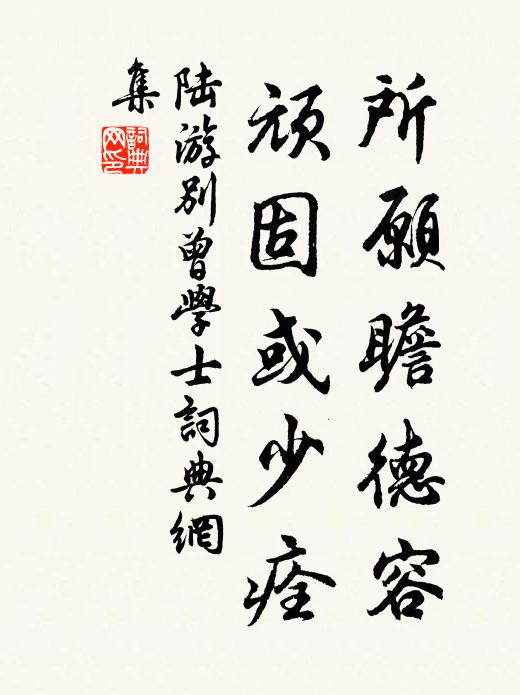 所願瞻德容
頑固或少痊
陸游別曾學士詞典網
集
詞典
网印